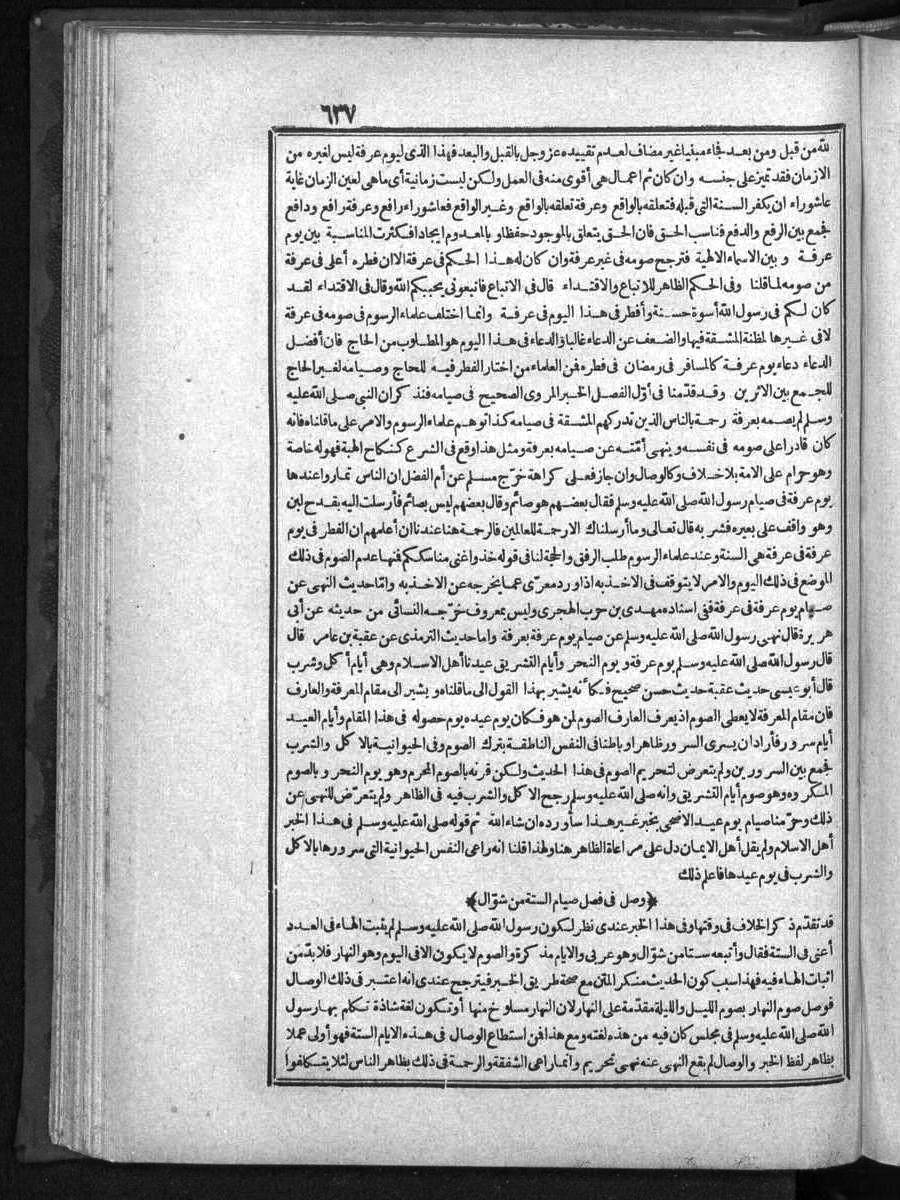 ٦٣٧
لله من قبل ومن بعد فجاء مبنيا غير مضاف لعدم تقييده عز وجل بالقبل والبعد فهذا الذى ليوم عرفة ليس لغيره من
الازمان فقد تميز على جنسه وان كان ثم اعمال هى أقوى منه فى العمل ولكن ليست زمانية أى ما هى لعين الزمان غاية
عاشوراء ان يكفر السنة التى قبله فتعلقه بالواقع وعرفة تعلقه بالواقع وغير الواقع فعاشوراء رافع وعرفة رافع ودافع
فجمع بين الرفع والدفع فناسب الحق فان الحق يتعلق بالموجود حفظا وبالمعدوم ايجادا فكثرت المناسبة بين يوم
عرفة وبين الاسماء الالهية فترجح صومه فى غير عرفة وان كان له هذا الحكم فى عرفة الا ان فطره أعلى فى عرفة
من صومه لما قلنا وفى الحكم الظاهر للاتباع والاقتداء قال فى الاتباع فاتبعونى يحببكم الله وقال فى الاقتداء لقد
كان لكم فى رسول الله أسوة حسنة وأفطر فى هذا اليوم فى عرفة وانما اختلف علماء الرسوم فى صومه فى عرفة
لا فى غيرها لمظنة المشقة فيها والضعف عن الدعاء غالبا والدعاء فى هذا اليوم هو المطلوب من الحاج فان أفضل
الدعاء دعاء يوم عرفة كالمسافر فى رمضان فى فطره فمن العلماء من اختار الفطر فيه للحاج وصيامه لغير الحاج
للجمع بين الاثرين وقد قدمنا فى أول الفصل الخبر المروى الصحيح فى صيامه فنذكر ان النبى صلى الله عليه
وسلم لم يصمه بعرفة رحمة بالناس الذين تدركهم المشقة فى صيامه كذا توهم علماء الرسوم والامر على ما قلناه فانه
كان قادرا على صومه فى نفسه وينهى أمته عن صيامه بعرفة ومثل هذا وقع فى الشرع كنكاح الهبة فهو له خاصة
وهو حرام على الامة بلا خلاف وكالوصال وان جاز فعلى كراهة خرّج مسلم عن أم الفضل ان الناس تماروا عندها
يوم عرفة فى صيام رسول الله صلى الله عليه وسلم فقال بعضهم هو صائم وقال بعضهم ليس بصائم فأرسلت اليه بقدح لبن
وهو واقف على بعيره فشربه قال تعالى وما أرسلناك الا رحمة للعالمين فالرحمة هنا عندنا ان أعلمهم ان الفطر فى يوم
عرفة فى عرفة هى السنة وعند علماء الرسوم طلب الرفق والحجة لنا فى قوله خذوا عنى مناسككم فمنها عدم الصوم فى ذلك
الموضع فى ذلك اليوم والامر لا يتوقف فى الاخذ به اذا ورد معرّى عما يخرجه عن الاخذ به وامّا حديث النهى عن
صيام يوم عرفة فى عرفة ففى اسناده مهدى بن حرب الهجرى وليس بمعروف خرّجه النسائى من حديثه عن أبى
هريرة قال نهى رسول الله صلى الله عليه وسلم عن صيام يوم عرفة بعرفة واما حديث الترمذى عن عقبة بن عامر قال
قال رسول الله صلى الله عليه وسلم يوم عرفة ويوم النحر وأيام التشريق عيدنا أهل الاسلام وهى أيام أكل وشرب
قال أبو عيسى حديث عقبة حديث حسن صحيح فكأنه يشير بهذا القول الى ما قلناه ويشير الى مقام المعرفة والعارف
فان مقام المعرفة لا يعطى الصوم اذ يعرف العارف الصوم لمن هو فكان يوم عيده يوم حصوله فى هذا المقام وأيام العيد
أيام سرور فأراد ان يسرى السرور ظاهرا وباطنا فى النفس الناطقة بترك الصوم وفى الحيوانية بالاكل والشرب
فجمع بين السرورين ولم يتعرض لتحريم الصوم فى هذا الحديث ولكن قرنه بالصوم المحرم وهو يوم النحر وبالصوم
المكروه وهو صوم أيام التشريق وانه صلى الله عليه وسلم رجح الاكل والشرب فيه فى الظاهر ولم يتعرّض للنهى عن
ذلك وحرّمنا صيام يوم عيد الاضحى بخبر غير هذا سأورده ان شاء الله ثم قوله صلى الله عليه وسلم فى هذا الخبر
أهل الاسلام ولم يقل أهل الايمان دل على مراعاة الظاهر هنا ولهذا قلنا انه راعى النفس الحيوانية التى سرورها بالاكل
والشرب فى يوم عيدها فاعلم ذلك
﴿وصل فى فصل صيام الستة من شوّال﴾
قد تقدّم ذكر الخلاف فى وقتها وفى هذا الخبر عندى نظر لكون رسول الله صلى الله عليه وسلم لم يثبت الهاء فى العدد
أعنى فى الستة فقال وأتبعه ستا من شوّال وهو عربى والايام مذكرة والصوم لا يكون الا فى اليوم وهو النهار فلا بدّ من
اثبات الهاء فيه فهذا سبب كون الحديث منكر المتن مع صحة طريق الخبر فيترجح عندى انه اعتبر فى ذلك الوصال
فوصل صوم النهار بصوم الليل والليلة مقدّمة على النهار لان النهار مسلوخ منها أو تكون لغة شاذة تكلم بها رسول
الله صلى الله عليه وسلم فى مجلس كان فيه من هذه لغته ومع هذا فمن استطاع الوصال فى هذه الايام الستة فهو أولى عملا
بظاهر لفظ الخبر والوصال لم يقع النهى عنه نهى تحريم وانما راعى الشفقة والرحمة فى ذلك بظاهر الناس لئلا يتكلفوا